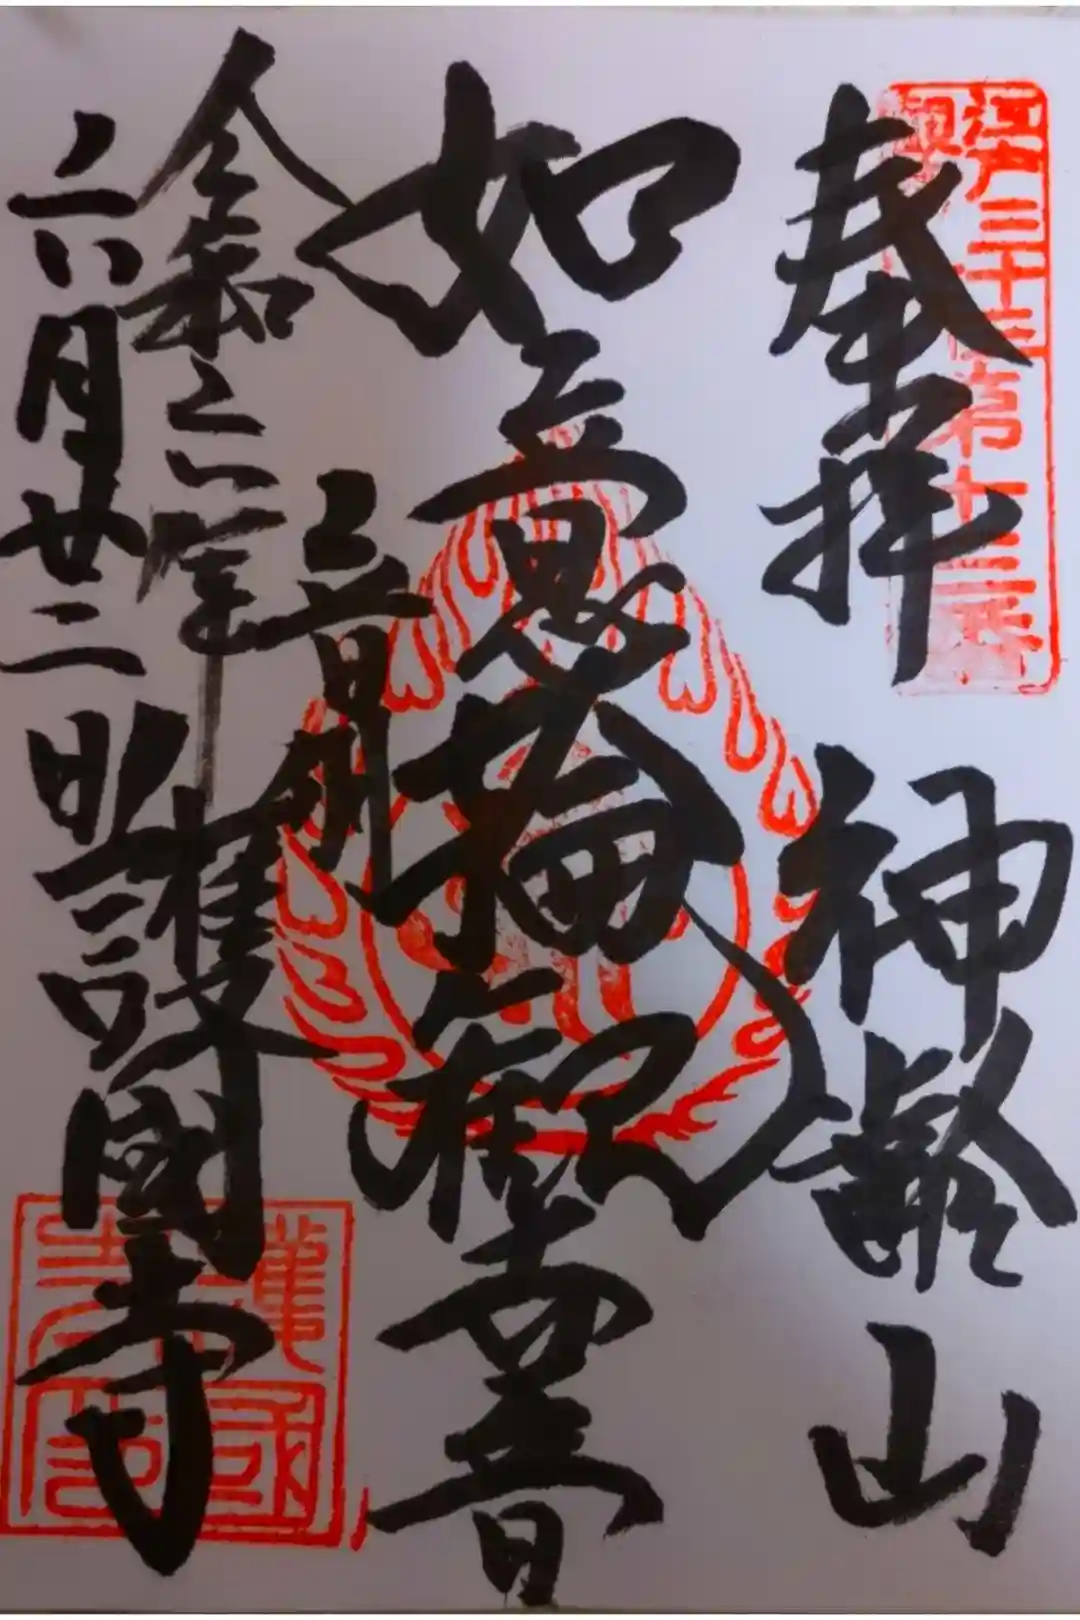 奉拝
神齢山
江戸三十三所第十三番
如意輪観世音
音羽
令和六年
六月廿二
護國寺